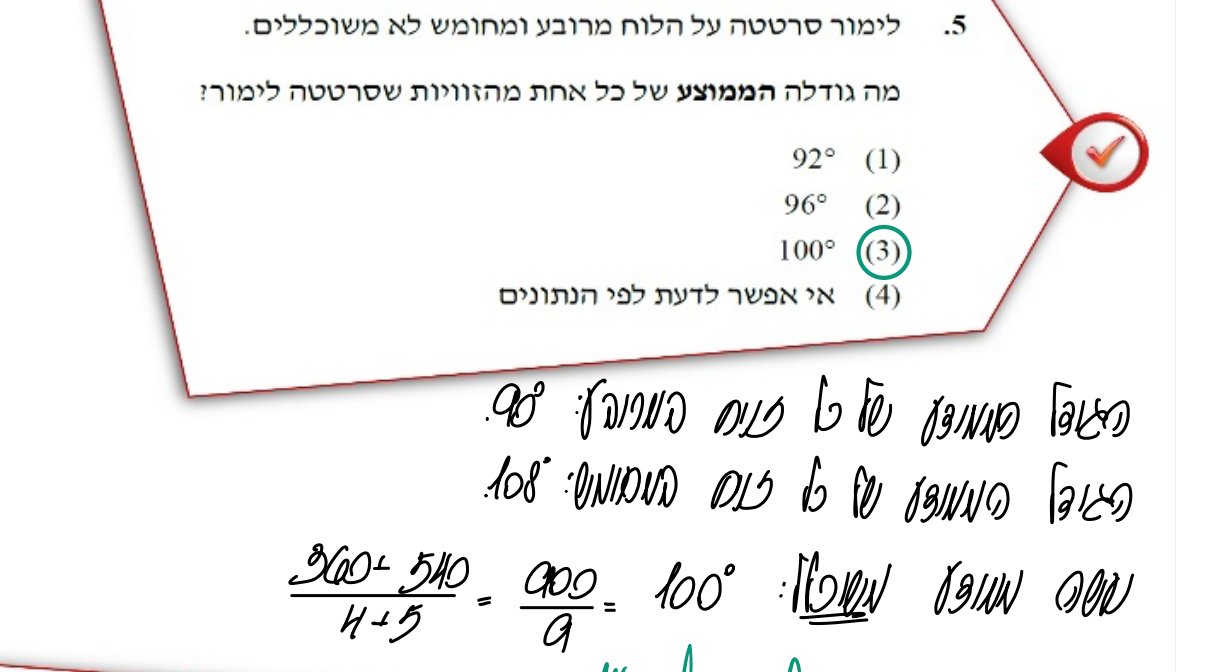 5. לימור סרטטה על הלוח מרובע ומחומש לא משוכללים.
מה גודלה הממוצע של כל אחת מהזוויות שסרטטה לימור?
(1) 92°
(2) 96°
(3) 100°
(4) אי אפשר לדעת לפי הנתונים
הגודל הממוצע של כל זווית במרובע: 90°.
הגודל הממוצע של כל זווית במחומש: 108°.
נעשה ממוצע משוקלל: 360+540 / 4+5 = 900 / 9 = 100°